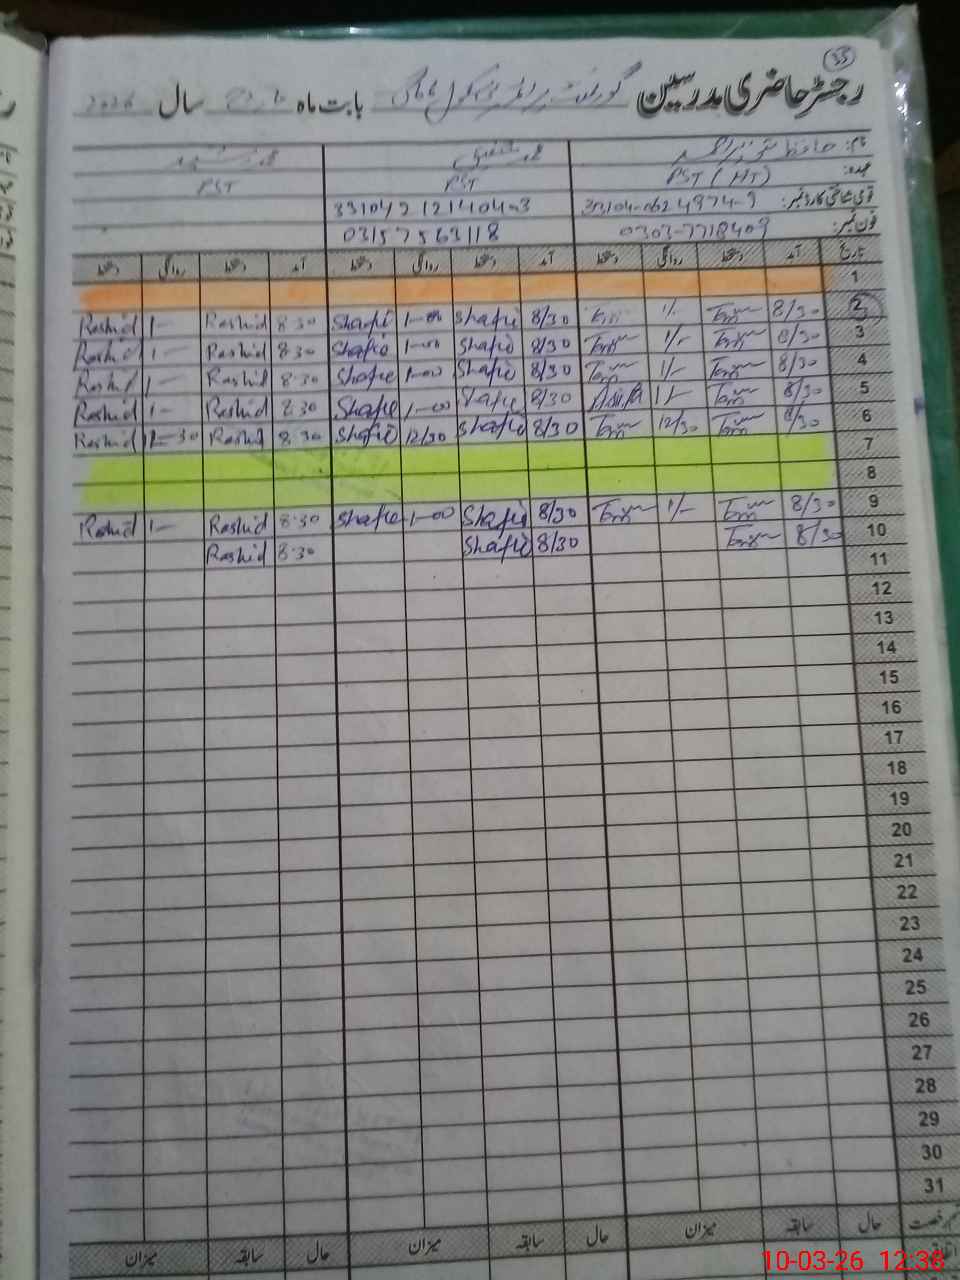 35
رجسٹر حاضری مدرسین گورنمنٹ پرائمری سکول بابت ماہ سال 2026
نام: حافظ
عہدہ: PST (HT) PST PST
قومی شناختی کارڈ نمبر: 33104-0624974-9 33104 2121404-3
فون نمبر: 0303-7718409 03157563118
تاریخ آمد دستخط روانگی دستخط آمد دستخط روانگی دستخط آمد دستخط روانگی دستخط
1
Rashid 1- Rashid 8 30 Shafie 1-00 Shafie 8/30 1/- 8/30 2
Rashid 1- Rashid 8 30 Shafie 1-00 Shafie 8/30 1/- 8/30 3
Rashid 1- Rashid 8.30 Shafie 1-00 Shafie 8/30 1/- 8/30 4
Rashid 1- Rashid 8.30 Shafie 1-00 Shafie 8/30 1/- 8/30 5
Rashid 12-30 Rashid 8.30 Shafie 12/30 Shafie 8/30 12/30 8/30 6
7
8
Rashid 1- Rashid 8.30 Shafie 1-00 Shafie 8/30 1/- 8/30 9
Rashid 8.30 Shafie 8/30 8/30 10
11
12
13
14
15
16
17
18
19
20
21
22
23
24
25
26
27
28
29
30
31
حال سابقہ میزان حال سابقہ میزان حال سابقہ میزان
10-03-26 12:38